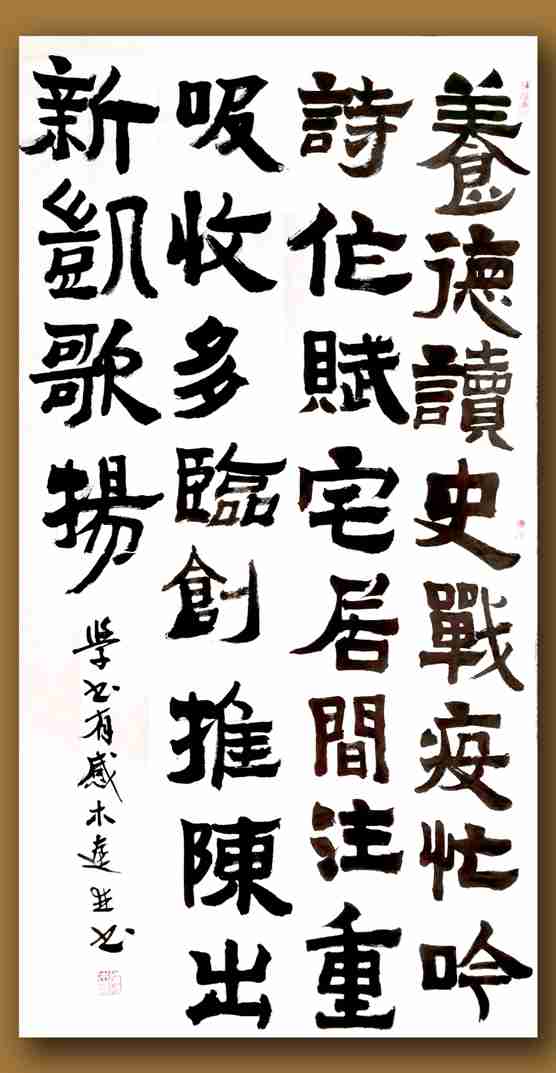 養德讀史戰疫忙吟
詩作賦宅居間注重
吸收多臨創推陳出
新凱歌揚
学书有感木達並书